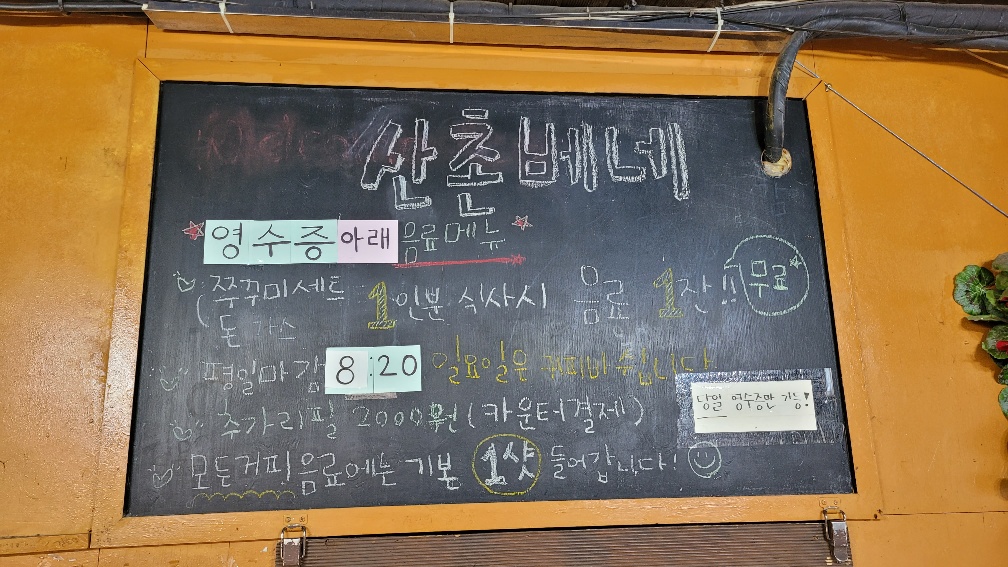 산촌베네
영수증 아래 음료메뉴
쭈꾸미세트
돈가스
1인분 식사시 음료 1잔!! 무료
평일마감 8:20 일요일은 커피바 쉽니다
당일 영수증만 가능!
추가리필 2000원 (카운터결제)
모든커피음료에는 기본 1샷 들어갑니다!